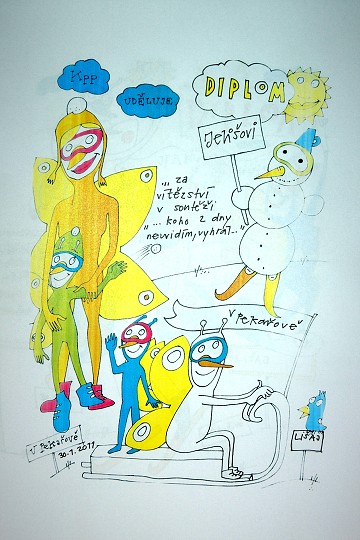 KPP
UDĚLUJE
DIPLOM
Jehišovi
"... za
vítězství
v soutěži
"... koho 2 dny
nevidím, vyhrál..."
V Pekařově
V Pekařově
30.1.2011
LIŠÁK